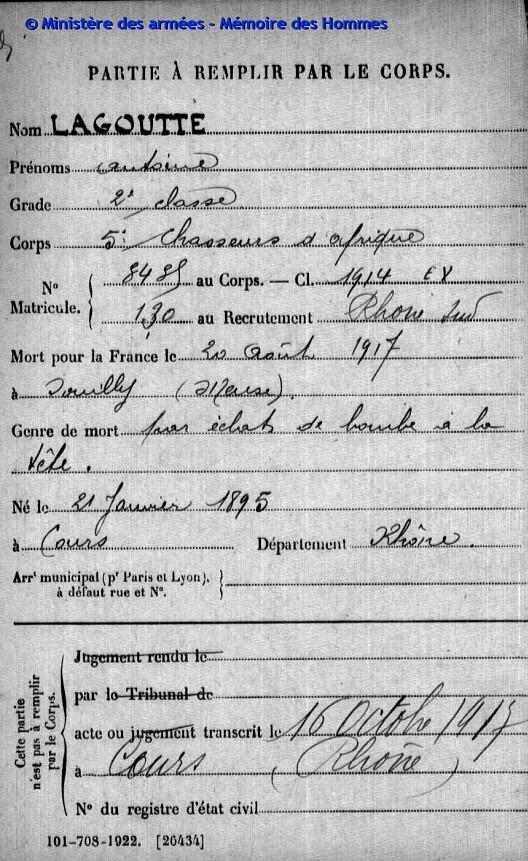 © Ministère des armées - Mémoire des Hommes
PARTIE À REMPLIR PAR LE CORPS.
Nom LAGOUTTE
Prénoms antoine
Grade 2e classe
Corps 5e Chasseurs d'afrique
N° Matricule. 8485 au Corps. — Cl. 1914 EV
130 au Recrutement Rhône Sud
Mort pour la France le 20 Août 1917
à Souilly (Meuse).
Genre de mort par éclats de bombe à la
tête.
Né le 21 Janvier 1895
à Cours Département Rhône.
Arrt municipal (pr Paris et Lyon),
à défaut rue et N°.
Cette partie
n'est pas à remplir
par le Corps.
Jugement rendu le
par le Tribunal de
acte ou jugement transcrit le 16 Octobre 1917
à Cours (Rhône)
N° du registre d'état civil
101-708-1922. [26434]